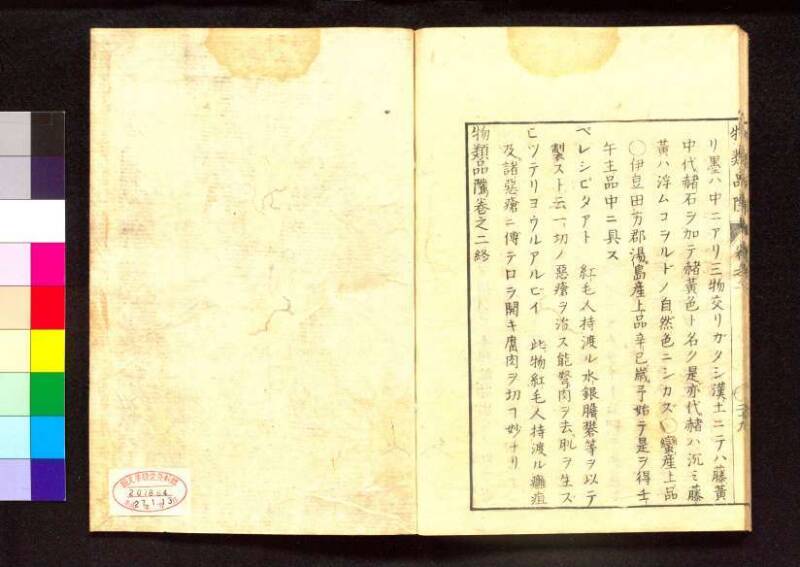 リ墨ハ中ニアリ三物交リガタシ漢土ニテハ藤黄
中代赭石ヲ加テ赭黄色ト名ク是亦代赭ハ沉ミ藤
黄ハ浮ムコヲルドノ自然色ニシカズ〇蛮産上品
〇伊豆田方郡湯島産上品辛巳歳予始テ是ヲ得壬
午主品中ニ具ス
ペレシピタアト 紅毛人持渡ル水銀膽礬等ヲ以テ
製スト云一切ノ悪瘡ヲ治ス能瞖肉ヲ去肌ヲ生ズ
ヒッテリヨウルアルビイ 此物紅毛人持渡ル癰疽
及諸惡瘡ニ傅テロヲ開キ腐肉ヲ切ヿ妙ナリ
物類品隲巻之二終
物類品隲
207864
27.1.13